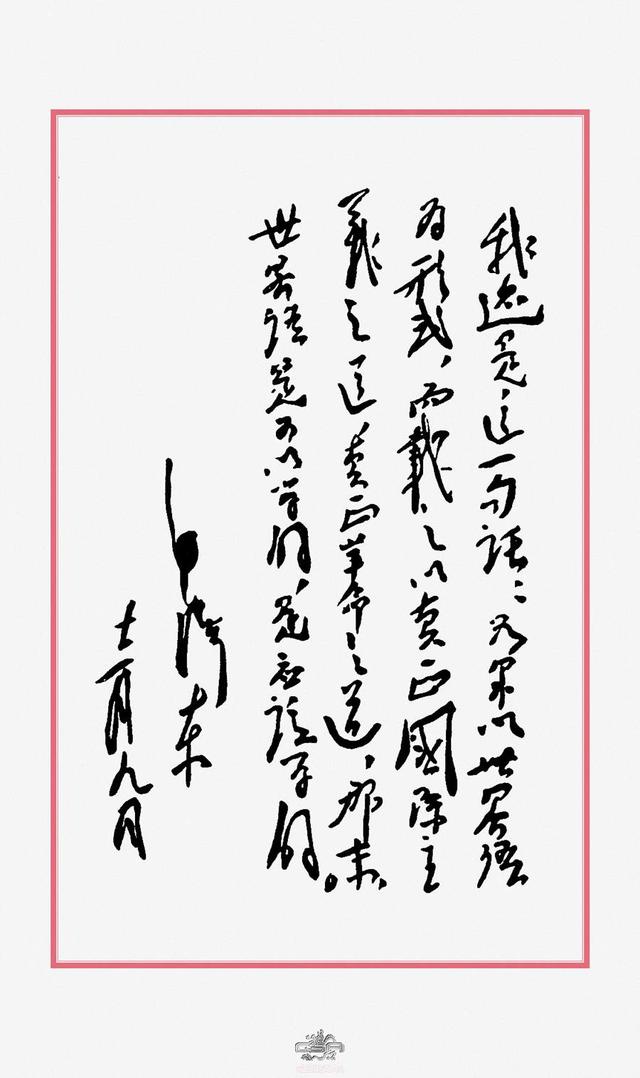 我还是，这一句話：如果以世界語
为形式，而載之以真正國际主
義之道，真正革命之道，那末，
世界語是可以学的，是应該学的。
毛泽东
十二月九日